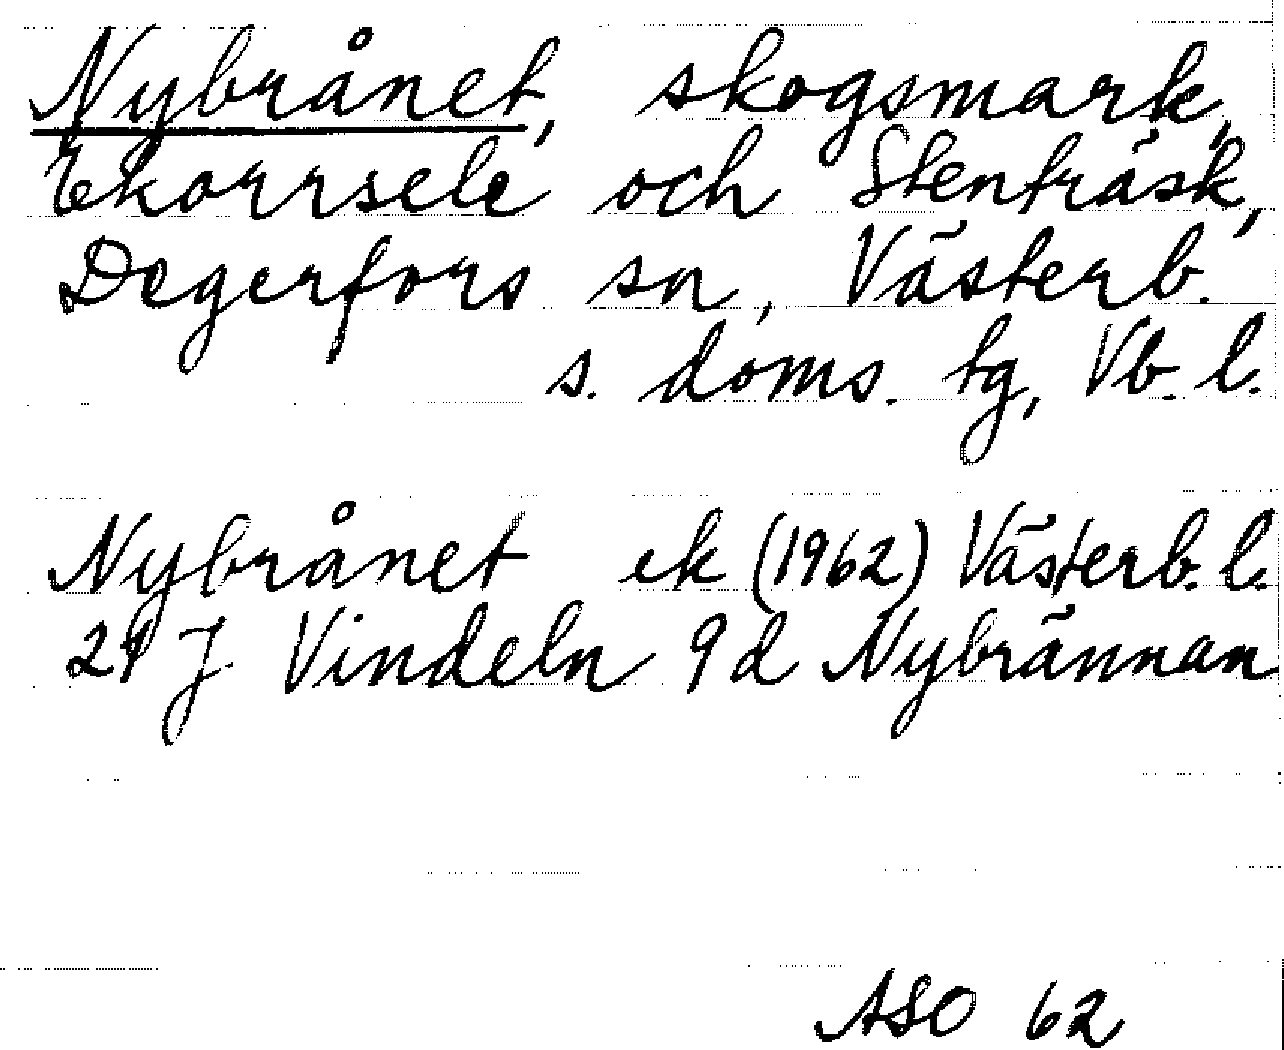 Nybrånet, skogsmark,
Ekorrsele och Stenträsk,
Degerfors sn, Västerb.
s. doms. tg, Vb. l.
Nybrånet ek (1962) Västerb. l.
21 J Vindeln 9d Nybrännan
ASO 62